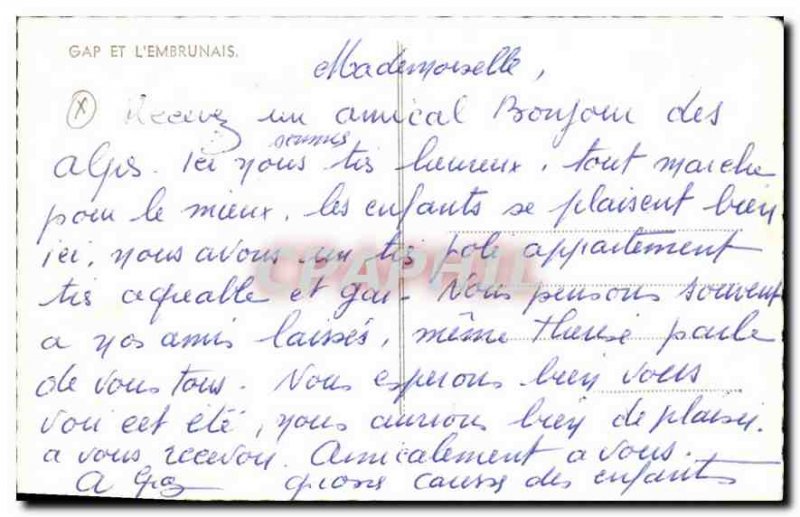 GAP ET L'EMBRUNAIS.
Mademoiselle,
Recevez un amical Bonjour des
sommes
alpes. Ici nous très heureux. tout marche
pour le mieux. les enfants se plaisent bien
ici, nous avons un très joli appartement
très agréable et gai. Nous pensons souvent
a nos amis laissés, même Thérèse parle
de vous tous. Nous esperons bien vous
voir cet été, nous aurions bien de plaisir.
a vous recevoir. Amicalement a vous.
grosses causes des enfants
CPAPHIL